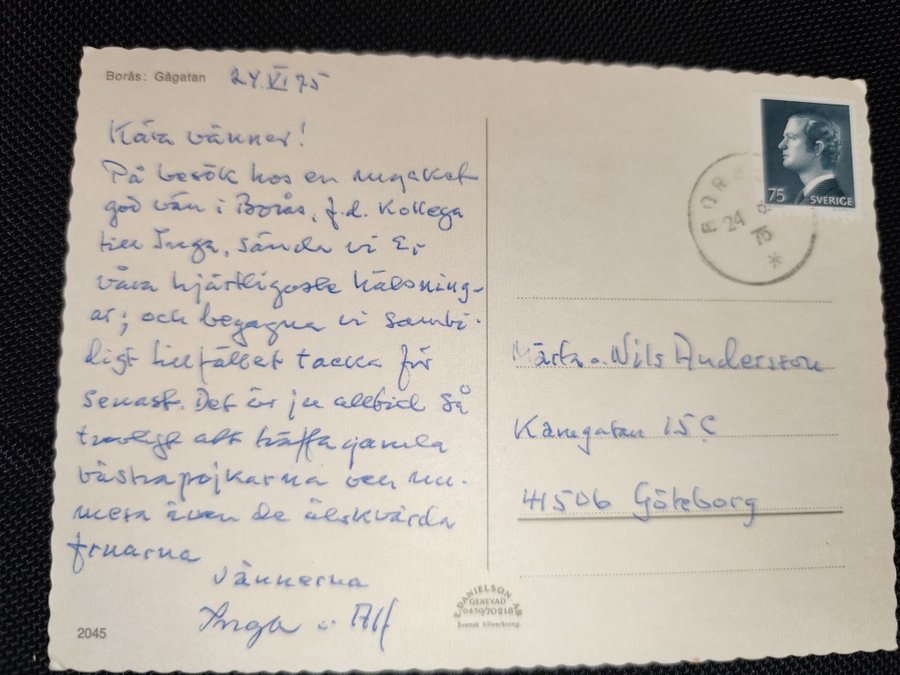 Borås: Gågatan
24.VI 75
Kära vänner!
På besök hos en mycket
god vän i Borås, f.d. kollega
till Inga, sända vi Er
våra hjärtligaste hälsning-
ar; och begagna vi samti-
digt tillfället tacka för
senast. Det är ju alltid så
trevligt att träffa gamla
västrapojkarna och nu-
mera även de älskvärda
fruarna
Vännerna
Inga o Alf
2045
75 SVERIGE
BOR
24
75
*
Märta o Nils Andersson
15C
41506 Göteborg
E. DANIELSON AB
GENEVAD
0430/70218
Svensk tillverkning.